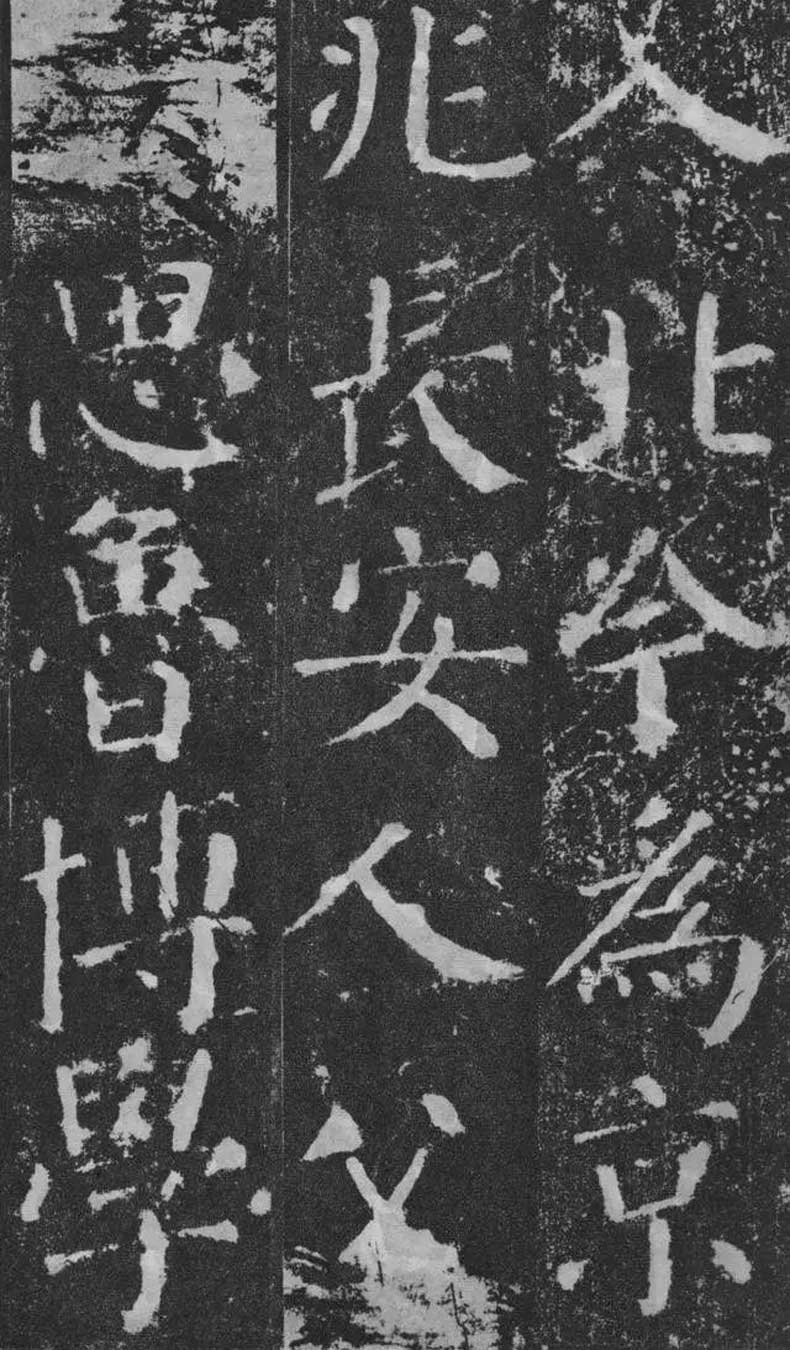 入北今為京
兆長安人父
思魯博學